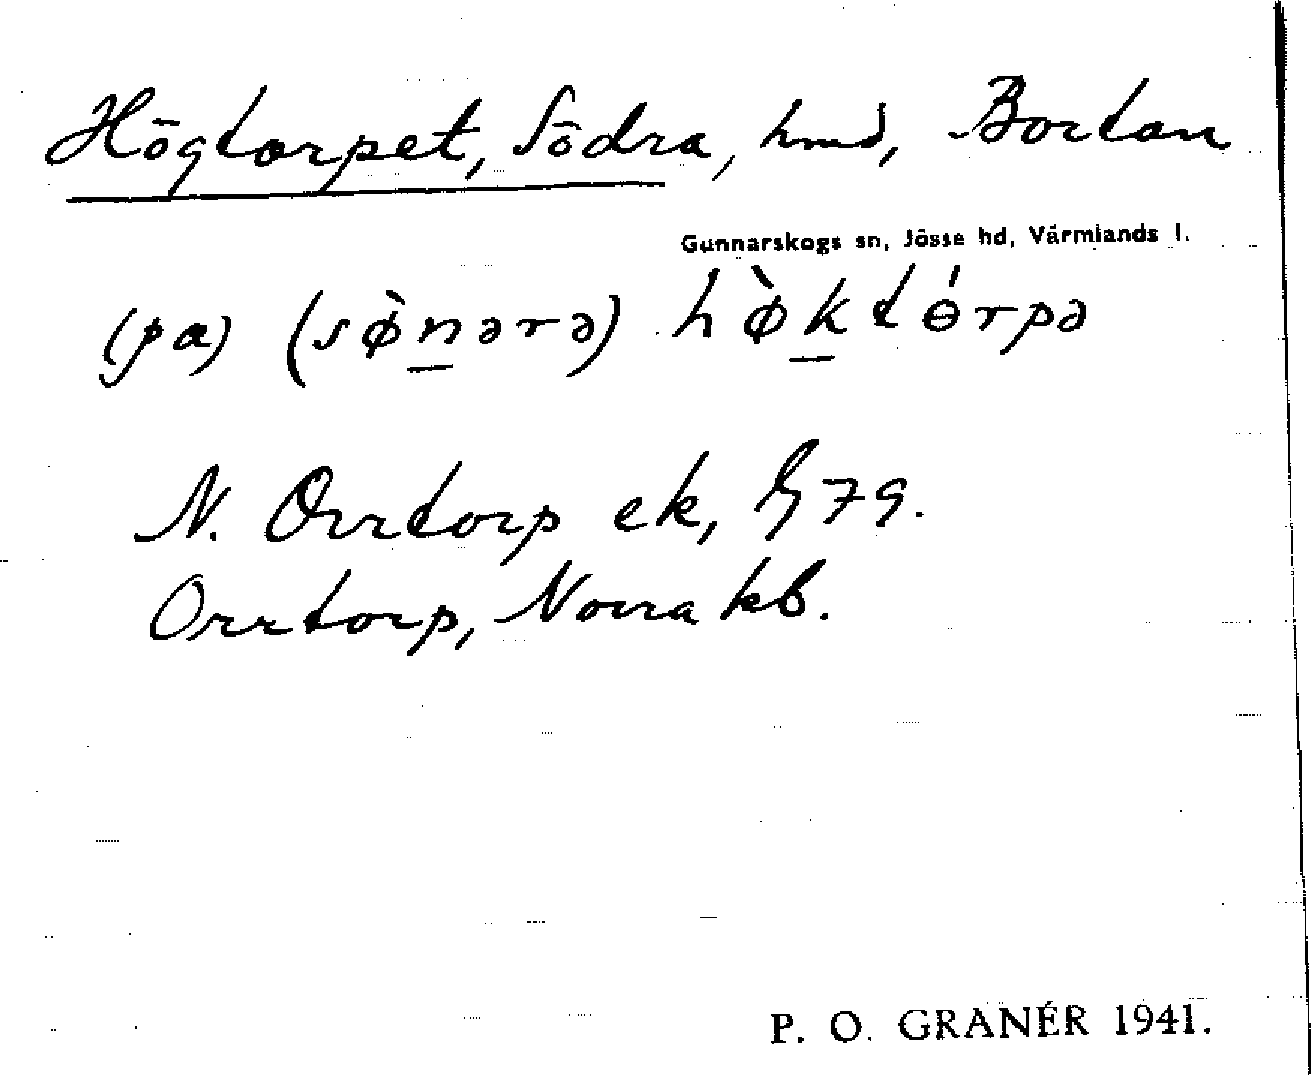 Högtorpet, Södra, hmd, Bortan
Gunnarskogs sn, Jösse hd, Värmlands l.
(pɑ) (sø̀nərə) hø̀ktɵ́rpə
N. Orrtorp ek, G 79.
Orrtorp, Norra kb.
P. O. GRANÉR 1941.